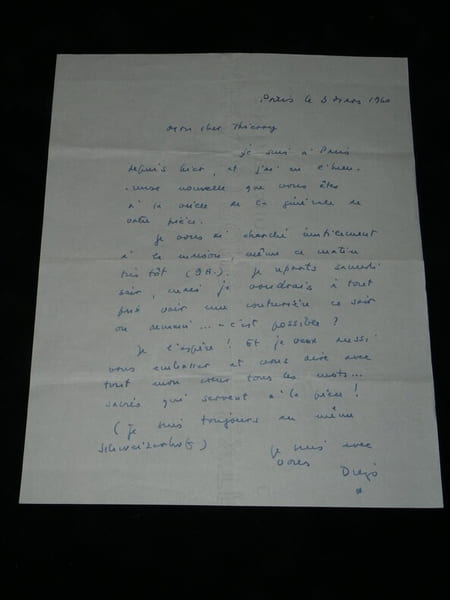 Paris le 3 Mars 1960
Mon cher Thierry
je suis à Paris
depuis hier, et j'ai eu l'heu-
reuse nouvelle que vous êtes
à la veille de la générale de
votre pièce.
Je vous ai cherché inutilement
à la maison, même ce matin
très tôt (9h.). Je repars samedi
soir, mais je voudrais à tout
prix voir une couturière ce soir
ou demain... c'est possible?
Je l'espère! Et je veux aussi
vous embrasser et vous dire avec
tout mon cœur tous les mots...
sacrés qui servent à la pièce!
(je suis toujours au même
je suis avec
vous